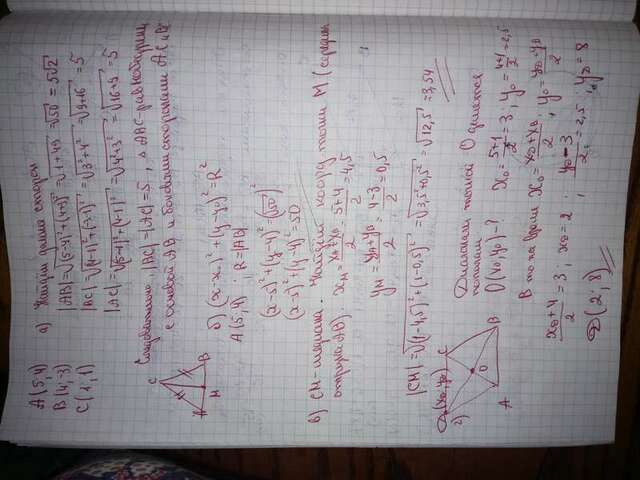 A(5;4)
B(4;-3)
C(1;1)
а) Найдём длины сторон
|AB|=√(5-4)²+(4+3)² = √1+49 = √50 = 5√2
|BC|=√(4-1)²+(-3-1)² = √3²+4² = √9+16 = 5
|AC|=√(5-1)²+(4-1)² = √4²+3² = √16+9 = 5
Следовательно, |BC|=|AC|=5, △ABC-равнобедренн
с основой AB и боковыми сторонами AC и BC
C
A M B
б) (x-x₀)²+(y-y₀)²=R²
A(5;4) ; R=|AB|
(x-5)²+(y-4)²=(√50)²
(x-5)²+(y-4)²=50
в) CM-медиана. Найдём коорд. точки M (середины
отрезка AB). xM = (xA+xB)/2 = (5+4)/2 = 4,5
yM = (yA+yB)/2 = (4-3)/2 = 0,5
|CM|=√(1-4,5)²+(1-0,5)² = √3,5²+0,5² = √12,5 = 3,54
г)
D(xD;yD) C
O
A B
Диагонали точкой O делятся
пополам
O(x₀;y₀)-? x₀ = (5+1)/2 = 3; y₀ = (4+1)/2 = 2,5
В то же время x₀ = (xD+xB)/2; y₀ = (yD+yB)/2
(xD+4)/2 = 3; xD = 2 ; (yD-3)/2 = 2,5; yD = 8
D(2;8)